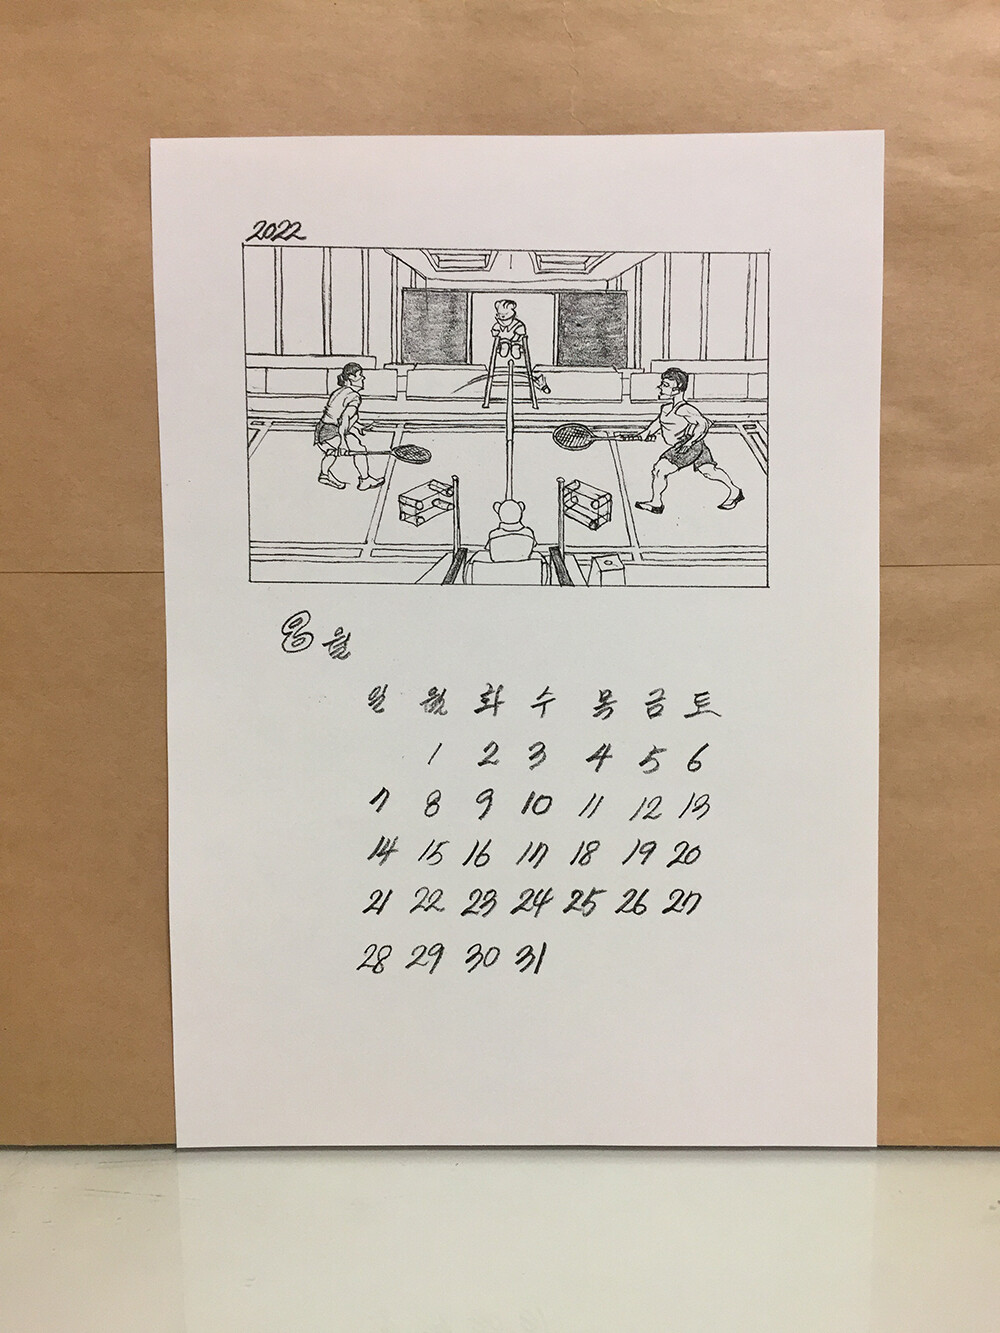 2022
8월
일 월 화 수 목 금 토
1 2 3 4 5 6
7 8 9 10 11 12 13
14 15 16 17 18 19 20
21 22 23 24 25 26 27
28 29 30 31